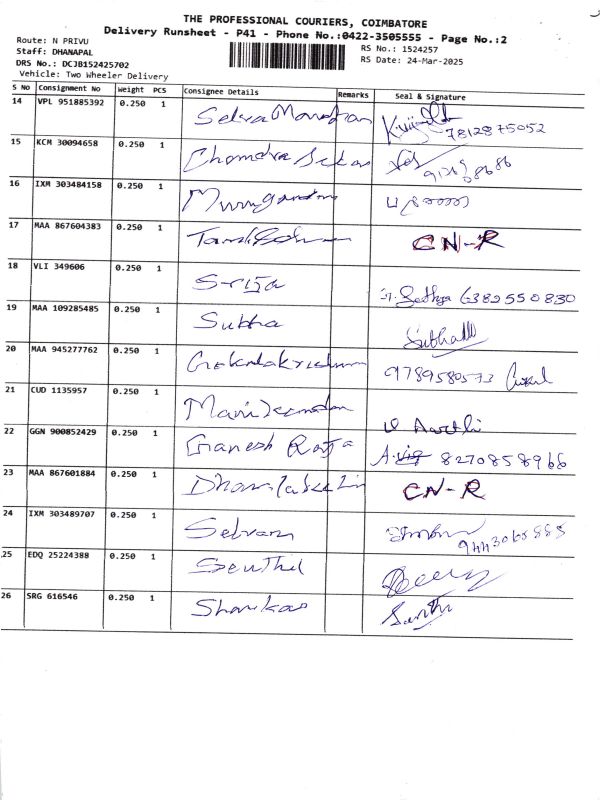 THE PROFESSIONAL COURIERS, COIMBATORE
Delivery Runsheet - P41 - Phone No.:0422-3505555 - Page No.:2
Route: N PRIVU
RS No.: 1524257
Staff: DHANAPAL
RS Date: 24-Mar-2025
DRS No.: DCJB152425702
Vehicle: Two Wheeler Delivery
S No Consignment No Weight PCS Consignee Details Remarks Seal & Signature
14 VPL 951885392 0.250 1 7812875052
15 KCM 30094658 0.250 1
16 IXM 303484158 0.250 1
17 MAA 867604383 0.250 1 CN-R
18 VLI 349606 0.250 1 Srija Sathya 6382550830
19 MAA 109285485 0.250 1 Subha
20 MAA 945277762 0.250 1 Gokulakrishnan 9789580573
21 CUD 1135957 0.250 1 Manikandan Aarthi
22 GGN 900852429 0.250 1 Ganesh Raja 8270858966
23 MAA 867601884 0.250 1 CN-R
24 IXM 303489707 0.250 1 Selvam
25 EDQ 25224388 0.250 1 Senthil
26 SRG 616546 0.250 1 Santhi